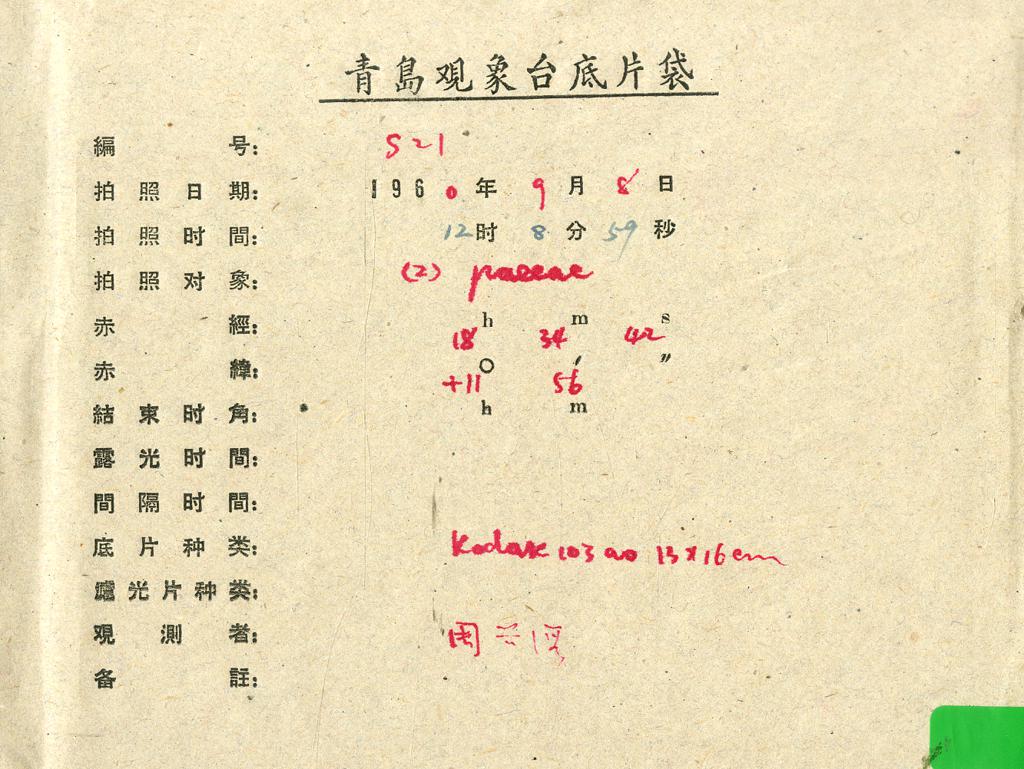 青島观象台底片袋
編号: S21
拍照日期: 1960年 9月 8日
拍照时間: 12时 8分 59秒
拍照对象: (2)
赤經: 18h 34m 42s
赤緯: +11° 56′ ″
結束时角: h m
露光时間:
間隔时間:
底片种类: Kodak 103 ao 13×16cm
濾光片种类:
观測者: 周
备註: